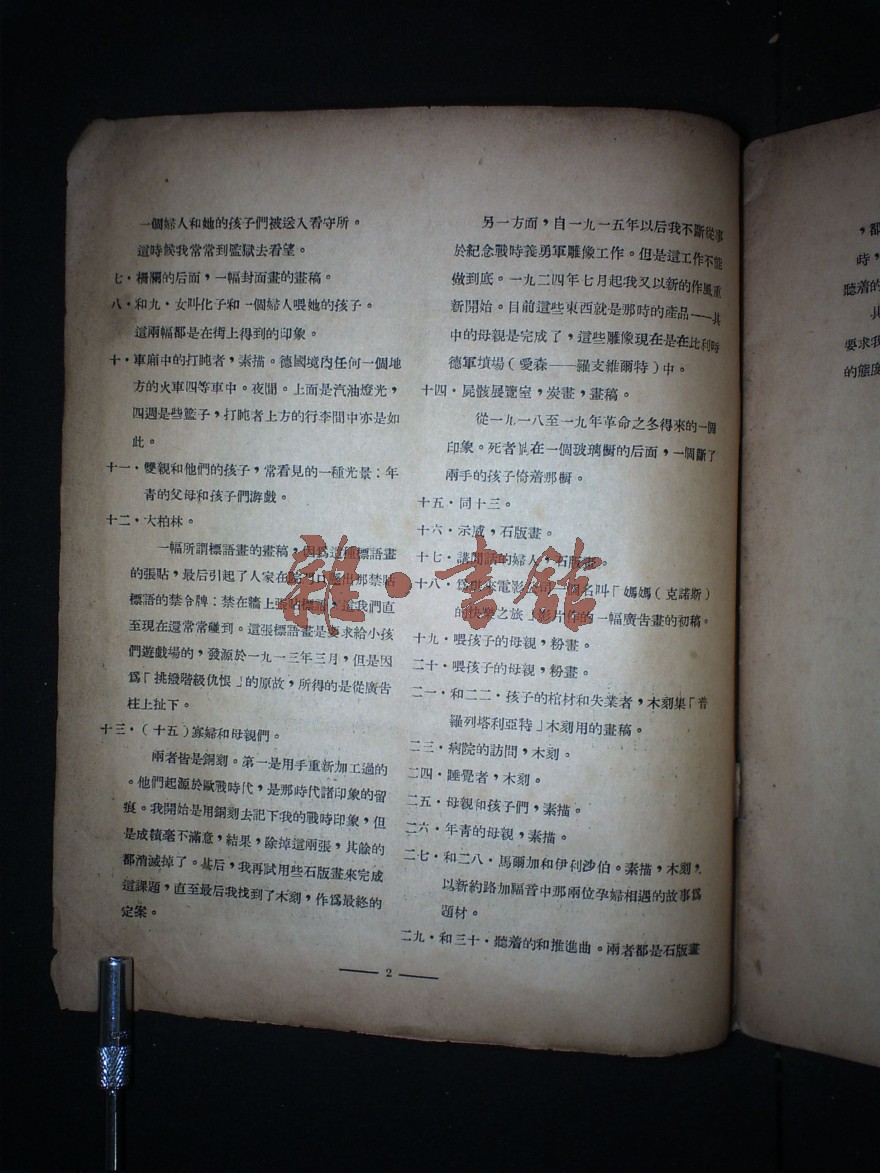 一個婦人和她的孩子們被送入看守所。
這時候我常常到監獄去看望。
七·柵闌的后面，一幅封面畫的畫稿。
八·和九·女叫化子和一個婦人喂她的孩子。
這兩幅都是在街上得到的印象。
十·車廂中的打盹者，素描。德國境內任何一個地
方的火車四等車中。夜間。上面是汽油燈光，
四週是些籃子，打盹者上方的行李間中亦是如
此。
十一·雙親和他們的孩子，常看見的一種光景：年
青的父母和孩子們游戲。
十二·大柏林。
一幅所謂標語畫的畫稿，因爲這種標語畫
的張貼，最后引起了人家在院門口 出那禁貼
標語的禁令牌：禁在牆上張貼標語，這我們直
至現在還常常碰到。這張標語畫是要求給小孩
們遊戲場的，發源於一九一三年三月，但是因
爲「挑撥階級仇恨」的原故，所得的是從廣告
柱上扯下。
十三·（十五）寡婦和母親們。
兩者皆是銅刻。第一是用手重新加工過的
。他們起源於歐戰時代，是那時代諸印象的留
痕。我開始是用銅刻去記下我的戰時印象，但
是成績毫不滿意，結果，除掉這兩張，其餘的
都消滅掉了。甚后，我再試用些石版畫來完成
這課題，直至最后我找到了木刻，作爲最終的
定案。
另一方面，自一九一五年以后我不斷從事
於紀念戰時義勇軍雕像工作。但是這工作不能
做到底。一九二四年七月起我又以新的作風重
新開始。目前這些東西就是那時的產品——其
中的母親是完成了，這些雕像現在是在比利時
德軍墳場（愛森——羅支維爾特）中。
十四·屍骸展覽室，炭畫，畫稿。
從一九一八至一九年革命之冬得來的一個
印象。死者 在一個玻璃櫥的后面，一個斷了
兩手的孩子倚着那櫥。
十五·同十三。
十六·示威，石版畫。
十七·講閒話的婦人，石版畫。
十八·爲 來電影公司一個名叫「媽媽（克諾斯）
的快樂之旅」影片作的一幅廣告畫的初稿。
十九·喂孩子的母親，粉畫。
二十·喂孩子的母親，粉畫。
二一·和二二·孩子的棺材和失業者，木刻集「普
羅列塔利亞特」木刻用的畫稿。
二三·病院的訪問，木刻。
二四·睡覺者，木刻。
二五·母親和孩子們，素描。
二六·年青的母親，素描。
二七·和二八·馬爾加和伊利沙伯。素描，木刻，
以新約路加福音中那兩位孕婦相遇的故事爲
題材。
二九·和三十·聽着的和推進曲。兩者都是石版畫
2
，都
時，
聽着的
其
要求我
的態度
雜·書館